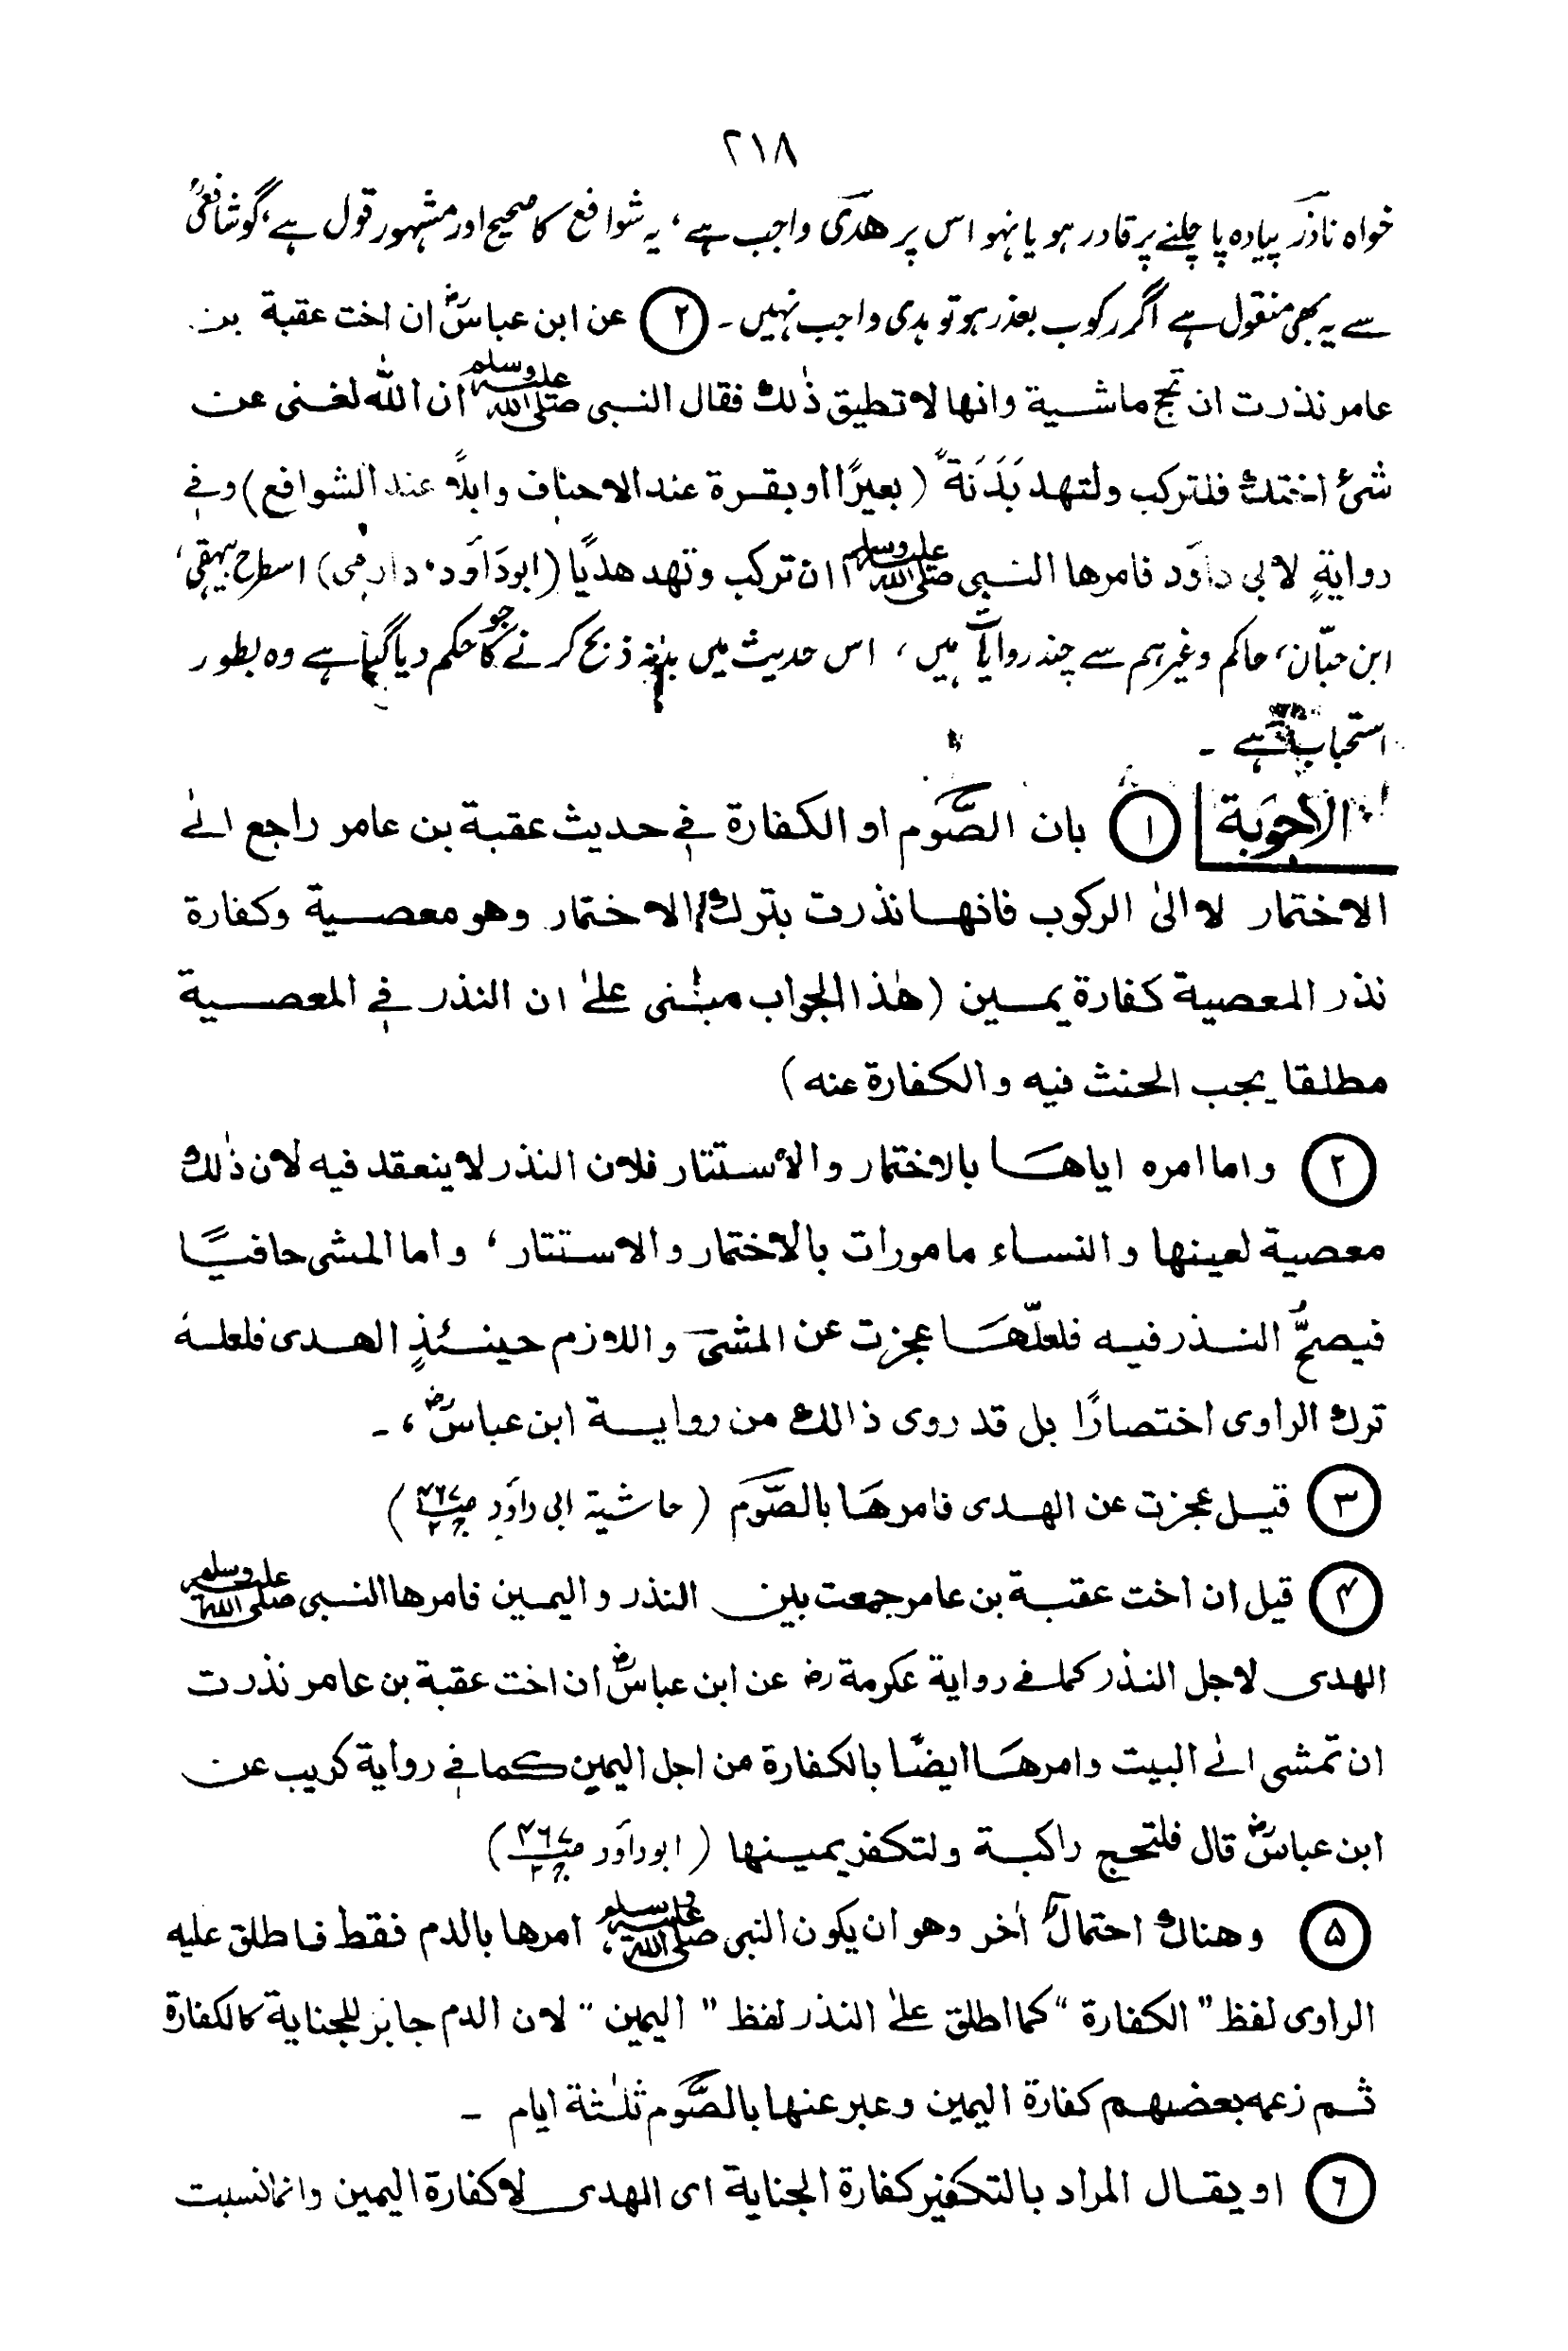 ۲۱۸
خواہ ناذر پیادہ پا چلنے پر قادر ہو یا نہو اس پر ھدی واجب ہے، یہ شوافع کا صحیح اور مشہور قول ہے، گو شافعیؒ
سے یہ بھی منقول ہے اگر رکوب بعذر ہو تو ہدی واجب نہیں ۔ ② عن ابن عباسؓ ان اخت عقبة بن
عامر نذرت ان تحج ماشية وانها لا تطيق ذٰلك فقال النبى صلى الله عليه وسلم ان الله لغنى عن
شئ اختك فلتركب ولتهد بَدَنَةً (بعيرًا او بقرة عند الاحناف وابلًا عند الشوافع) وفى
روايةٍ لابى داود فامرها النبى صلى الله عليه وسلم ان تركب وتهد هديًا (ابوداود، دارمى) اسطرح بیہقی،
ابن حبّان، حاکم وغیرہم سے چند روایات ہیں، اس حدیث میں بدنہ ذبح کرنے کا جو حکم دیا گیا ہے وہ بطور
استحباب ہے ۔
الاجوبة ① بان الصَّوم او الكفارة فى حديث عقبة بن عامر راجع الى
الاختمار لا الى الركوب فانها نذرت بترك الاختمار وهو معصية وكفارة
نذر المعصية كفارة يمين (هٰذا الجواب مبنى على ان النذر فى المعصية
مطلقا يجب الحنث فيه والكفارة عنه)
② واما امره اياها بالاختمار والاستتار فلان النذر لا ينعقد فيه لان ذٰلك
معصية لعينها والنساء مامورات بالاختمار والاستتار، واما المشى حافيًا
فيصحُّ النذر فيه فلعلّها عجزت عن المشى واللازم حينئذٍ الهدى فلعله
ترك الراوى اختصارًا بل قد روى ذالك من رواية ابن عباسؓ، ۔
③ قيل عجزت عن الهدى فامرها بالصَّوم (حاشية ابى داود ص۴۶۷ ج۲)
④ قيل ان اخت عقبة بن عامر جمعت بين النذر واليمين فامرها النبى صلى الله عليه وسلم
الهدى لاجل النذر كما فى رواية عكرمة رض عن ابن عباسؓ ان اخت عقبة بن عامر نذرت
ان تمشى الى البيت وامرها ايضًا بالكفارة من اجل اليمين كما فى رواية كريب عن
ابن عباسؓ قال فلتحج راكبة ولتكفر يمينها (ابوداود ص۴۶۷ ج۲)
⑤ وهناك احتمالٌ اٰخر وهو ان يكون النبى صلى الله عليه وسلم امرها بالدم فقط فاطلق عليه
الراوى لفظ "الكفارة" كما اطلق على النذر لفظ "اليمين" لان الدم جابر للجناية كالكفارة
ثم زعمه بعضهم كفارة اليمين وعبر عنها بالصَّوم ثلٰثة ايام ۔
⑥ او يقال المراد بالتكفير كفارة الجناية اى الهدى لا كفارة اليمين وانما نسبت